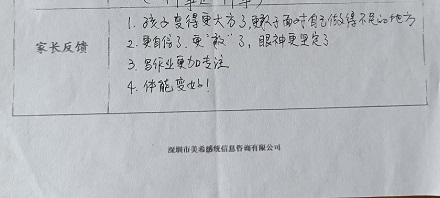 家长反馈
1. 孩子变得更大方了,更敢于面对自己做得不足的地方
2. 更自信了,更"敢"了,眼神更坚定了
3. 写作业更加专注
4. 体能变好!
深圳市美希感统信息咨询有限公司